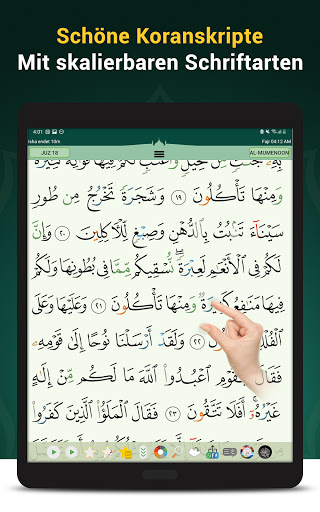 Schöne Koranskripte
Mit skalierbaren Schriftarten
4:01
Isha endet 10m
Fajr 04:12 AM
JUZ 18
AL-MUMENOON
بِهِۦ جَنَّٰتٍ مِّن نَّخِيلٍ وَأَعْنَٰبٍ لَّكُمْ فِيهَا فَوَٰكِهُ كَثِيرَةٌ
وَمِنْهَا تَأْكُلُونَ ١٩ وَشَجَرَةً تَخْرُجُ مِن طُورِ
سَيْنَآءَ تَنۢبُتُ بِٱلدُّهْنِ وَصِبْغٍ لِّلْـَٔاكِلِينَ ٢٠ وَإِنَّ
لَكُمْ فِى ٱلْأَنْعَٰمِ لَعِبْرَةً ۖ نُّسْقِيكُم مِّمَّا فِى بُطُونِهَا وَلَكُمْ
فِيهَا مَنَٰفِعُ كَثِيرَةٌ وَمِنْهَا تَأْكُلُونَ ٢١ وَعَلَيْهَا وَعَلَى
ٱلْفُلْكِ تُحْمَلُونَ ٢٢ وَلَقَدْ أَرْسَلْنَا نُوحًا إِلَىٰ قَوْمِهِۦ
فَقَالَ يَٰقَوْمِ ٱعْبُدُوا۟ ٱللَّهَ مَا لَكُم مِّنْ إِلَٰهٍ
غَيْرُهُۥٓ ۖ أَفَلَا تَتَّقُونَ ٢٣ فَقَالَ ٱلْمَلَؤُا۟ ٱلَّذِينَ كَفَرُوا۟